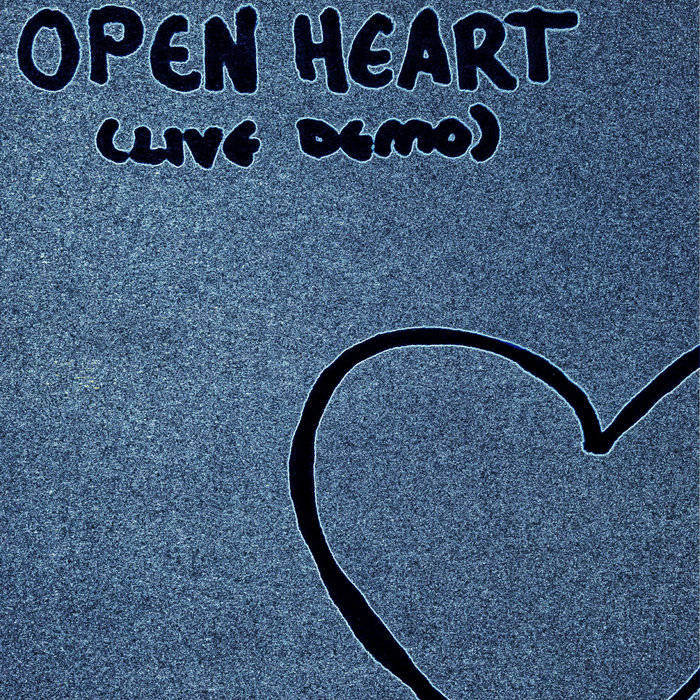 OPEN HEART
(LIVE DEMO)